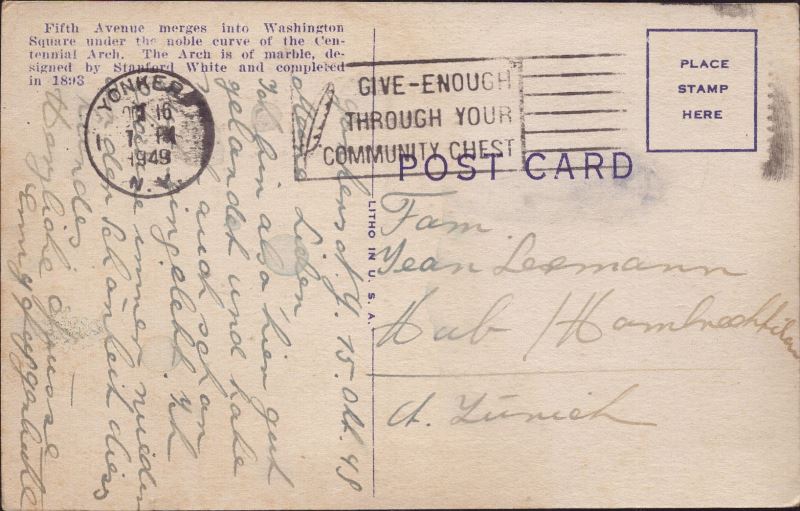 Fifth Avenue merges into Washington
Square under the noble curve of the Cen-
tennial Arch. The Arch is of marble, de-
signed by Stanford White and completed
in 1893
YONKERS
16
1949
N.Y.
GIVE-ENOUGH
THROUGH YOUR
COMMUNITY CHEST
PLACE
STAMP
HERE
POST CARD
LITHO IN U. S. A.
15. Okt. 49
Lieben
Ich bin also hier gut
gelandet und habe
mich auch schon
eingelebt. Ich
immer wieder
an den Schönheit dies
Landes
Herzliche Grüsse
Fam.
Jean
Hub / Hombrechtikon
Ct. Zürich